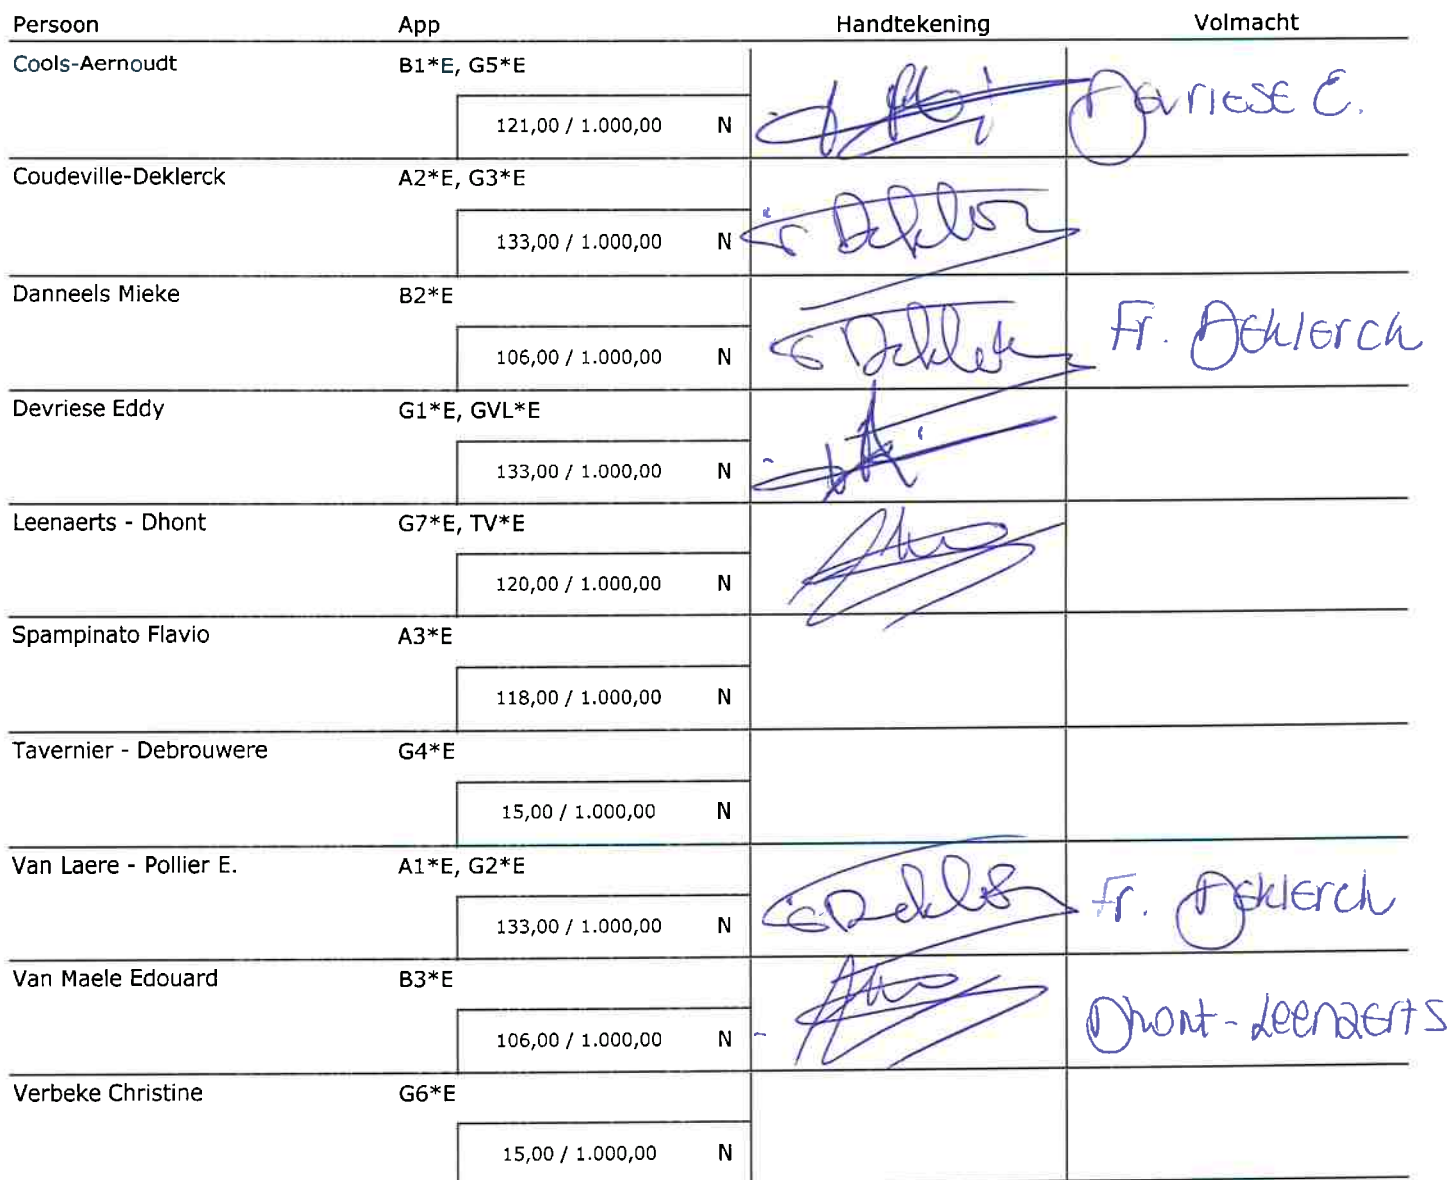 Persoon App Handtekening Volmacht
Cools-Aernoudt B1*E, G5*E
121,00 / 1.000,00 N Devriese E.
Coudeville-Deklerck A2*E, G3*E
133,00 / 1.000,00 N Deklerck
Danneels Mieke B2*E
106,00 / 1.000,00 N Deklerck Fr. Deklerck
Devriese Eddy G1*E, GVL*E
133,00 / 1.000,00 N
Leenaerts - Dhont G7*E, TV*E
120,00 / 1.000,00 N
Spampinato Flavio A3*E
118,00 / 1.000,00 N
Tavernier - Debrouwere G4*E
15,00 / 1.000,00 N
Van Laere - Pollier E. A1*E, G2*E
133,00 / 1.000,00 N Fr. Deklerck
Van Maele Edouard B3*E
106,00 / 1.000,00 N Dhont-Leenaerts
Verbeke Christine G6*E
15,00 / 1.000,00 N